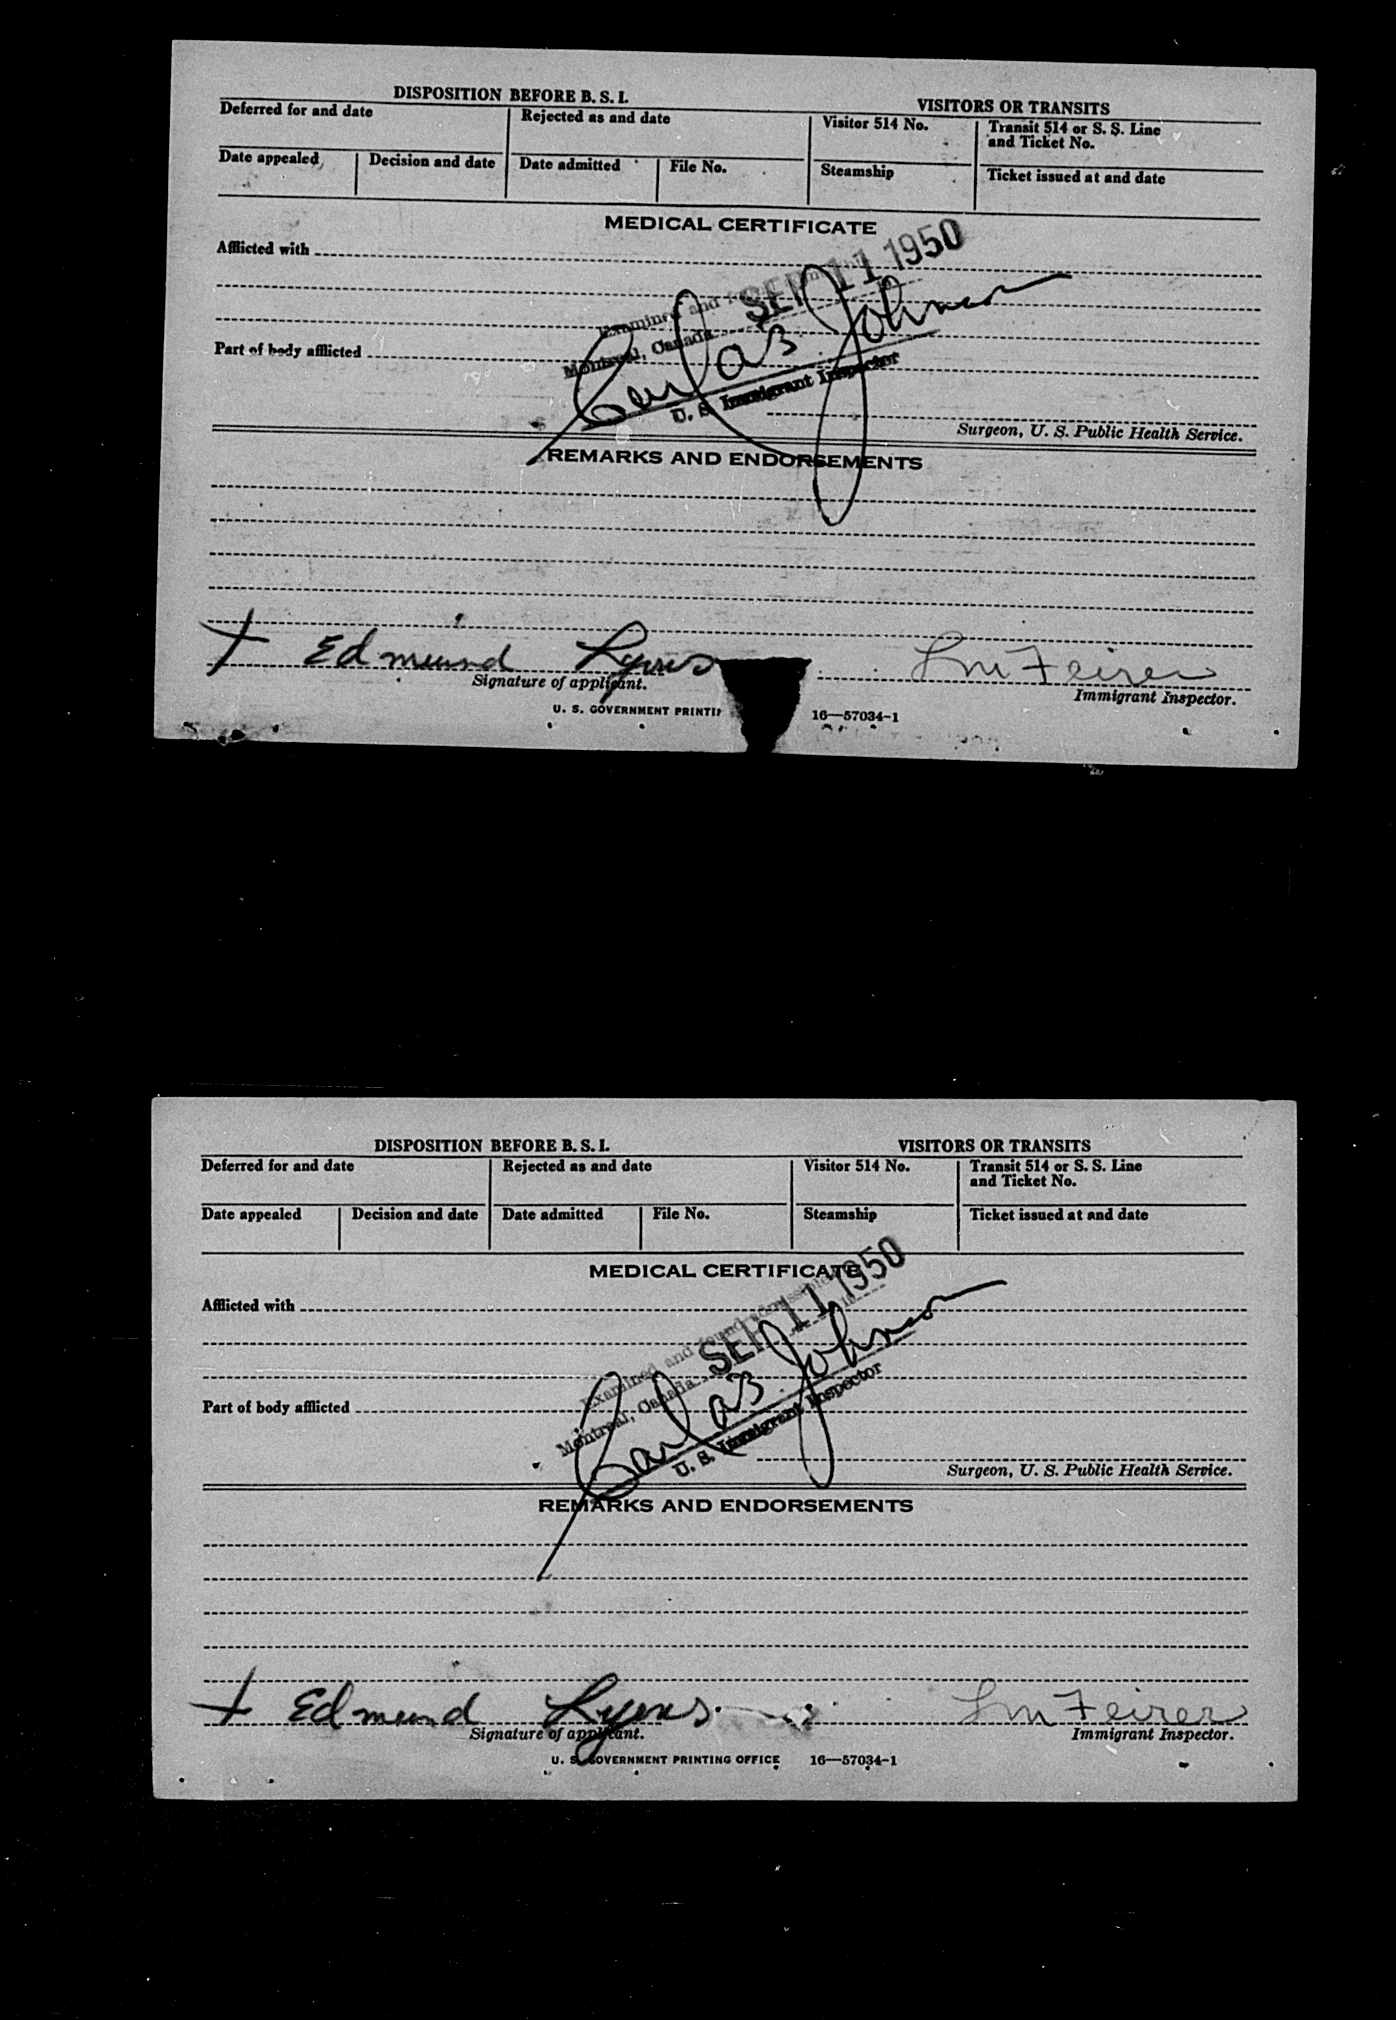 DISPOSITION BEFORE B. S. I. VISITORS OR TRANSITS
Deferred for and date Rejected as and date Visitor 514 No. Transit 514 or S. S. Line
and Ticket No.
Date appealed Decision and date Date admitted File No. Steamship Ticket issued at and date
MEDICAL CERTIFICATE
Afflicted with
Examined and SEP 11 1950
Montreal, Canada
Johnson
Part of body afflicted
U. S. Immigrant Inspector
Surgeon, U. S. Public Health Service.
REMARKS AND ENDORSEMENTS
Edmund Lyons
Signature of applicant. Immigrant Inspector.
U. S. GOVERNMENT PRINTI 16—57034-1
DISPOSITION BEFORE B. S. I. VISITORS OR TRANSITS
Deferred for and date Rejected as and date Visitor 514 No. Transit 514 or S. S. Line
and Ticket No.
Date appealed Decision and date Date admitted File No. Steamship Ticket issued at and date
MEDICAL CERTIFICATE
Afflicted with
Examined and found SEP 11 1950
Montreal, Canada
Johnson
Part of body afflicted
U. S. Immigrant Inspector
Surgeon, U. S. Public Health Service.
REMARKS AND ENDORSEMENTS
Edmund Lyons
Signature of applicant. Immigrant Inspector.
U. S. GOVERNMENT PRINTING OFFICE 16—57034-1